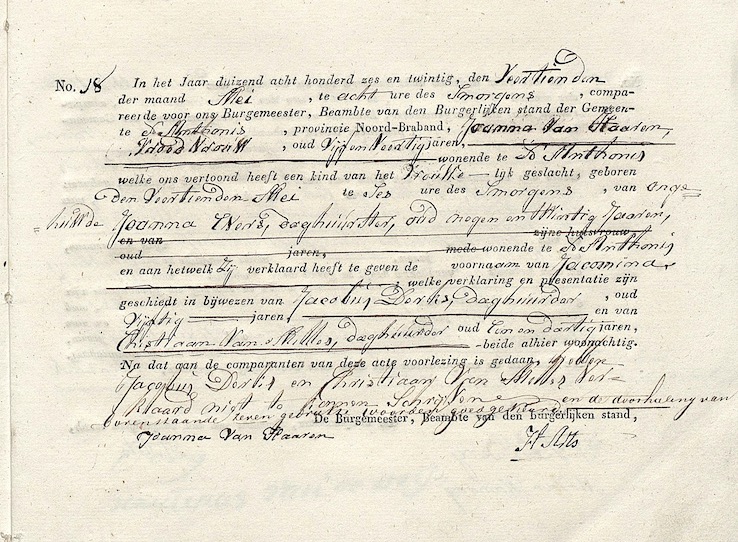 No. 18 In het Jaar duizend acht honderd zes en twintig, den Veertienden
der maand Mei , te acht ure des Smorgens , compa-
reerde voor ons Burgemeester, Beambte van den Burgerlijken stand der Gemeen-
te St Anthonis , provincie Noord-Braband, Joanna Van Haaren,
Vroed Vrouw , oud Vijf en Veertig jaren,
wonende te St Anthonis
welke ons vertoond heeft een kind van het Vrouwe-lijk geslacht, geboren
Den Veertienden Mei te Ses ure des Smorgens , van onge=
=huwde Joanna Evers, daghuurster, oud negen en twintig Jaaren,
en van zijne huisvrouw
oud jaren, mede wonende te St Anthonis
en aan hetwelk Zij verklaard heeft te geven de voornaam van Jacomina,
; welke verklaring en presentatie zijn
geschied in bijwezen van Jacobus Derks, daghuurder , oud
Vijftig jaren en van
Christiaan Van daghuurder oud Een en dartig jaren,
beide alhier woonachtig.
Na dat aan de comparanten van deze acte voorlezing is gedaan, hebben
Jacobus Derks en Christiaan Van ver-
klaard nigt te konnen Schrijven en de doorhaling van
bovenstaande goedgekeurd
De Burgemeester, Beambte van den burgerlijken stand,
Joanna Van Haaren H Arts